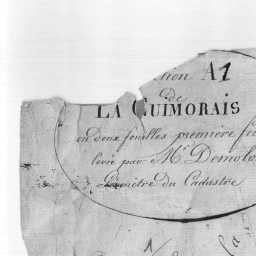 tion A1
de
LA GUIMORAIS
en deux feuilles première fe
levée par Mr. Demolo
Géomètre du Cadastre